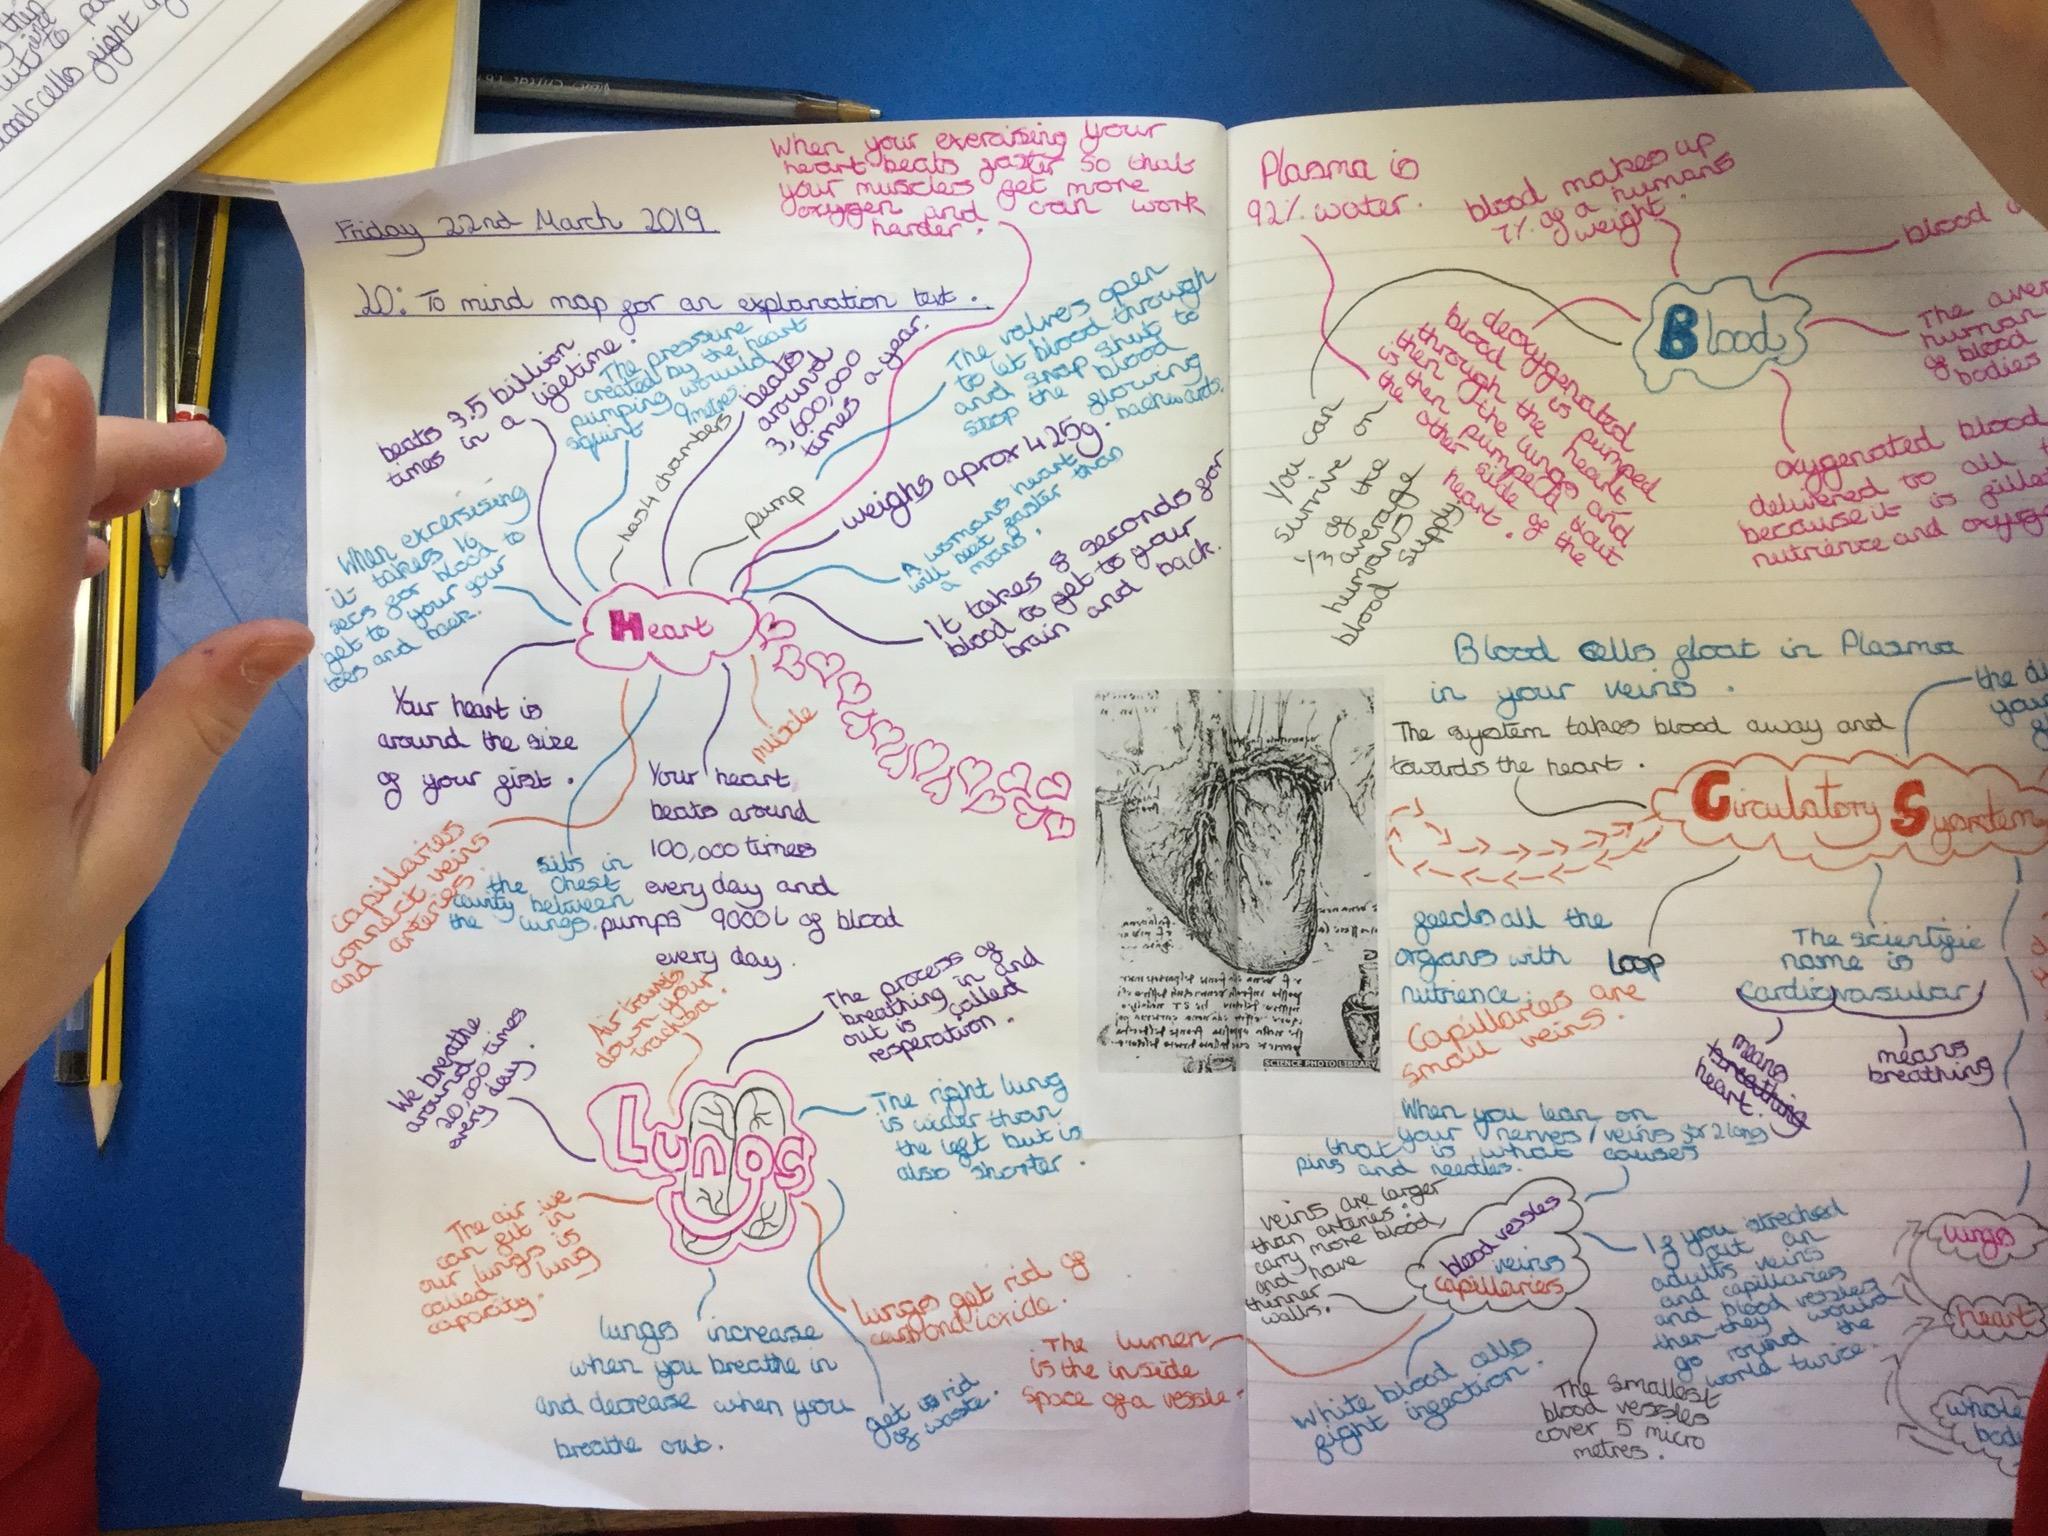 blood cells fight
Friday 22nd March 2019
LO: To mind map for an explanation text.
When your exercising your
heart beats faster so that
your muscles get more
oxygen and can work
harder.
beats 3.5 billion
times in a lifetime!
The pressure
created by the heart
pumping would
squirt 9metres.
has 4 chambers
beats
around
3,600,000
times a year.
pump
The valves open
to let blood through
and snap shut to
stop the blood
flowing
backwards.
weighs aprox 425g.
A womans heart
will beat faster than
a mans.
It takes 8 seconds for
blood to get to your
brain and back.
When excersising
it takes 16
secs for blood to
get to your your
toes and back.
Heart
Your heart is
around the size
of your fist.
muscle
Your heart
beats around
100,000 times
every day and
pumps 9000L of blood
every day.
capillaries
connect veins
and arteries.
sits in
the chest
cavity between
the lungs.
Air travels
down your
The process of
breathing in and
out is called
resperation.
We breathe
around
20,000 times
every day.
Lungs
The right lung
is wider than
the left but is
also shorter.
The air we
can fit in
our lungs is
called lung
capacity.
lungs increase
when you breathe in
and decrease when you
breathe out.
lungs get rid of
carbondioxide.
get us rid
of waste.
The lumen
is the inside
space of a vessle.
Plasma is
92% water.
blood makes up
7% of a humans
weight.
Blood
blood
The
human
of blood
bodies
deoxygenated
blood is pumped
through the heart
then the lungs and
is then pumped out
the other side of the
heart.
You can
survive on
1/3 of the
average
humans
blood supply
oxygenated blood
delivered to all
because it is filled
nutrience and
Blood cells float in Plasma
in your veins.
The system takes blood away and
towards the heart.
the
your
Circulatory System
feeds all the
organs with
nutrience.
loop
The scientific
name is
cardiovasular
means
breathing
heart.
means
breathing
Capillaries are
small veins.
SCIENCE PHOTO LIBRARY
When you lean on
your nerves/veins for 2 long
that is what causes
pins and needles.
veins are larger
than arteries.
carry more blood,
and have
thinner
walls.
blood vessles
veins
capillaries
If you streched
out an
adults veins
and capillaries
and blood vessles
then they would
go round the
world twice.
White blood cells
fight infection.
The smallest
blood vessles
cover 5 micro
metres.
lungs
heart
whole
body